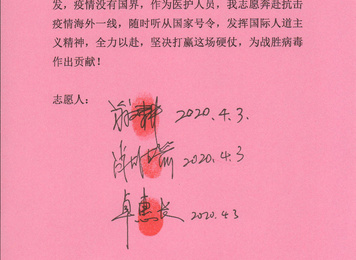 发，疫情没有国界，作为医护人员，我志愿奔赴抗击
疫情海外一线，随时听从国家号令，发挥国际人道主
义精神，全力以赴，坚决打赢这场硬仗，为战胜病毒
作出贡献！
志愿人：
2020.4.3.
2020.4.3
卓惠长 2020.4.3